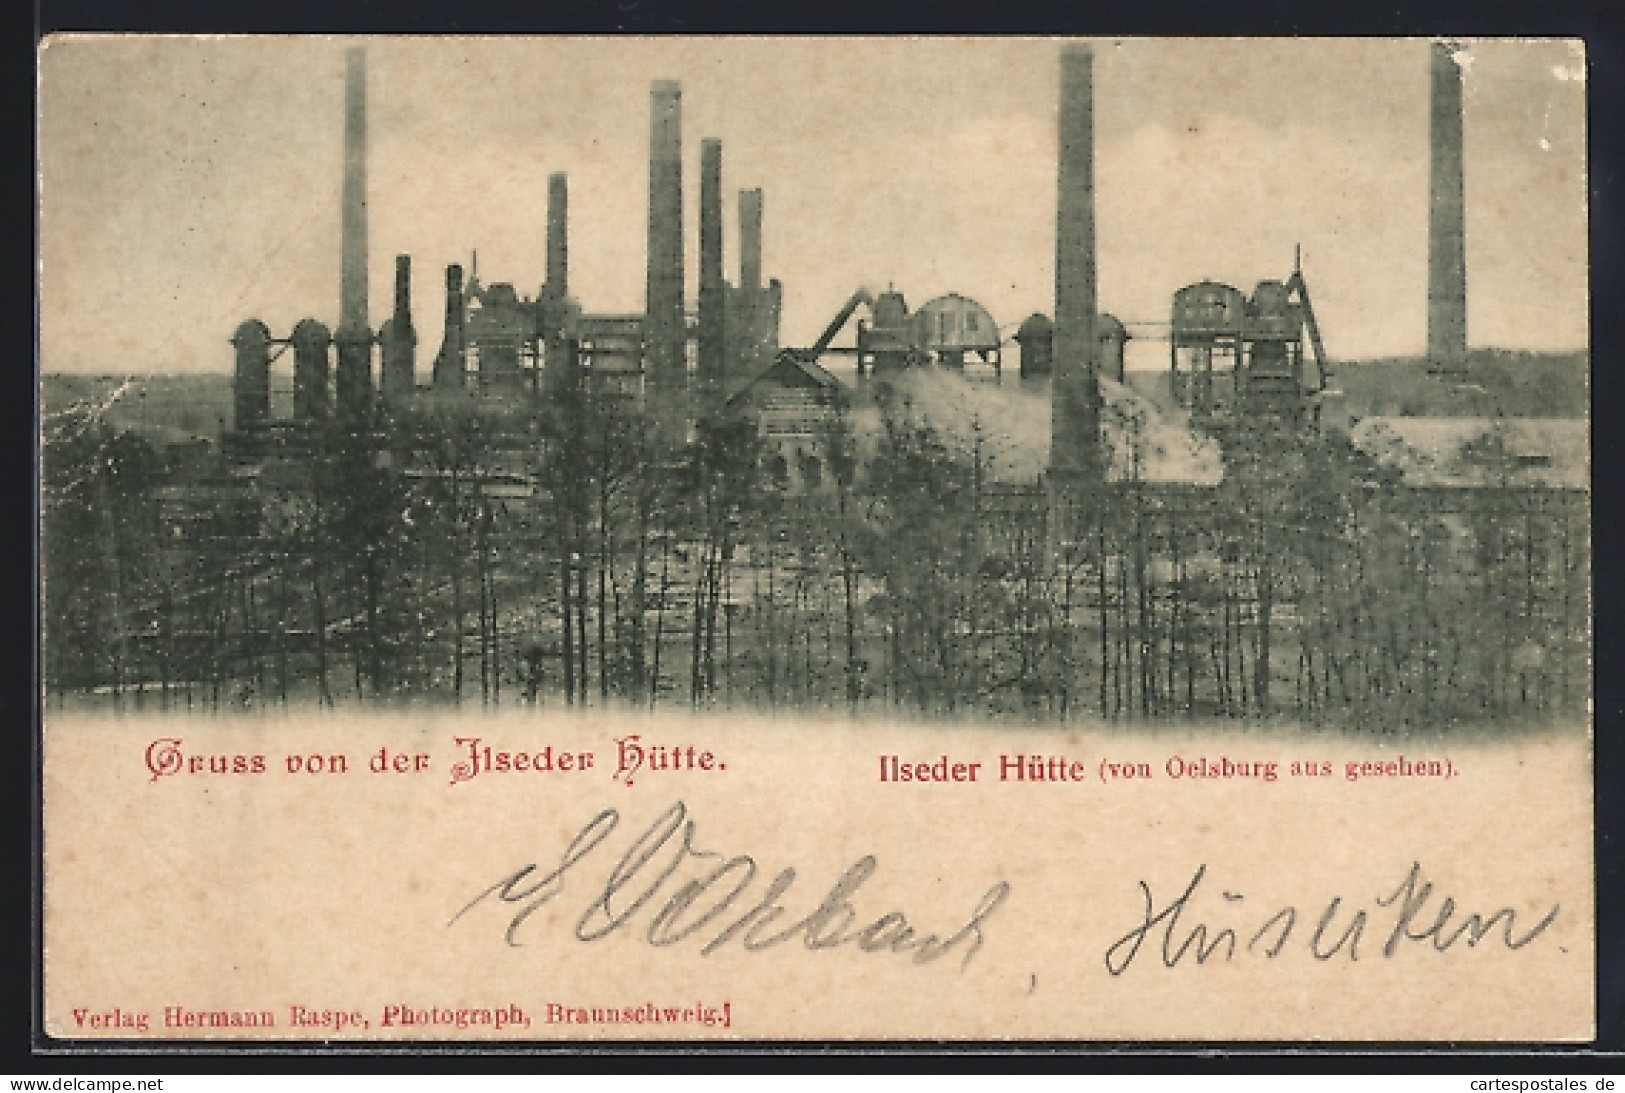 Gruss von der Ilseder Hütte.
Ilseder Hütte (von Oelsburg aus gesehen).
Verlag Hermann Raspe, Photograph, Braunschweig.
www.delcampe.net
cartespostales_de